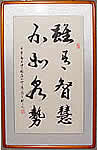 雖有智慧
不如乘勢